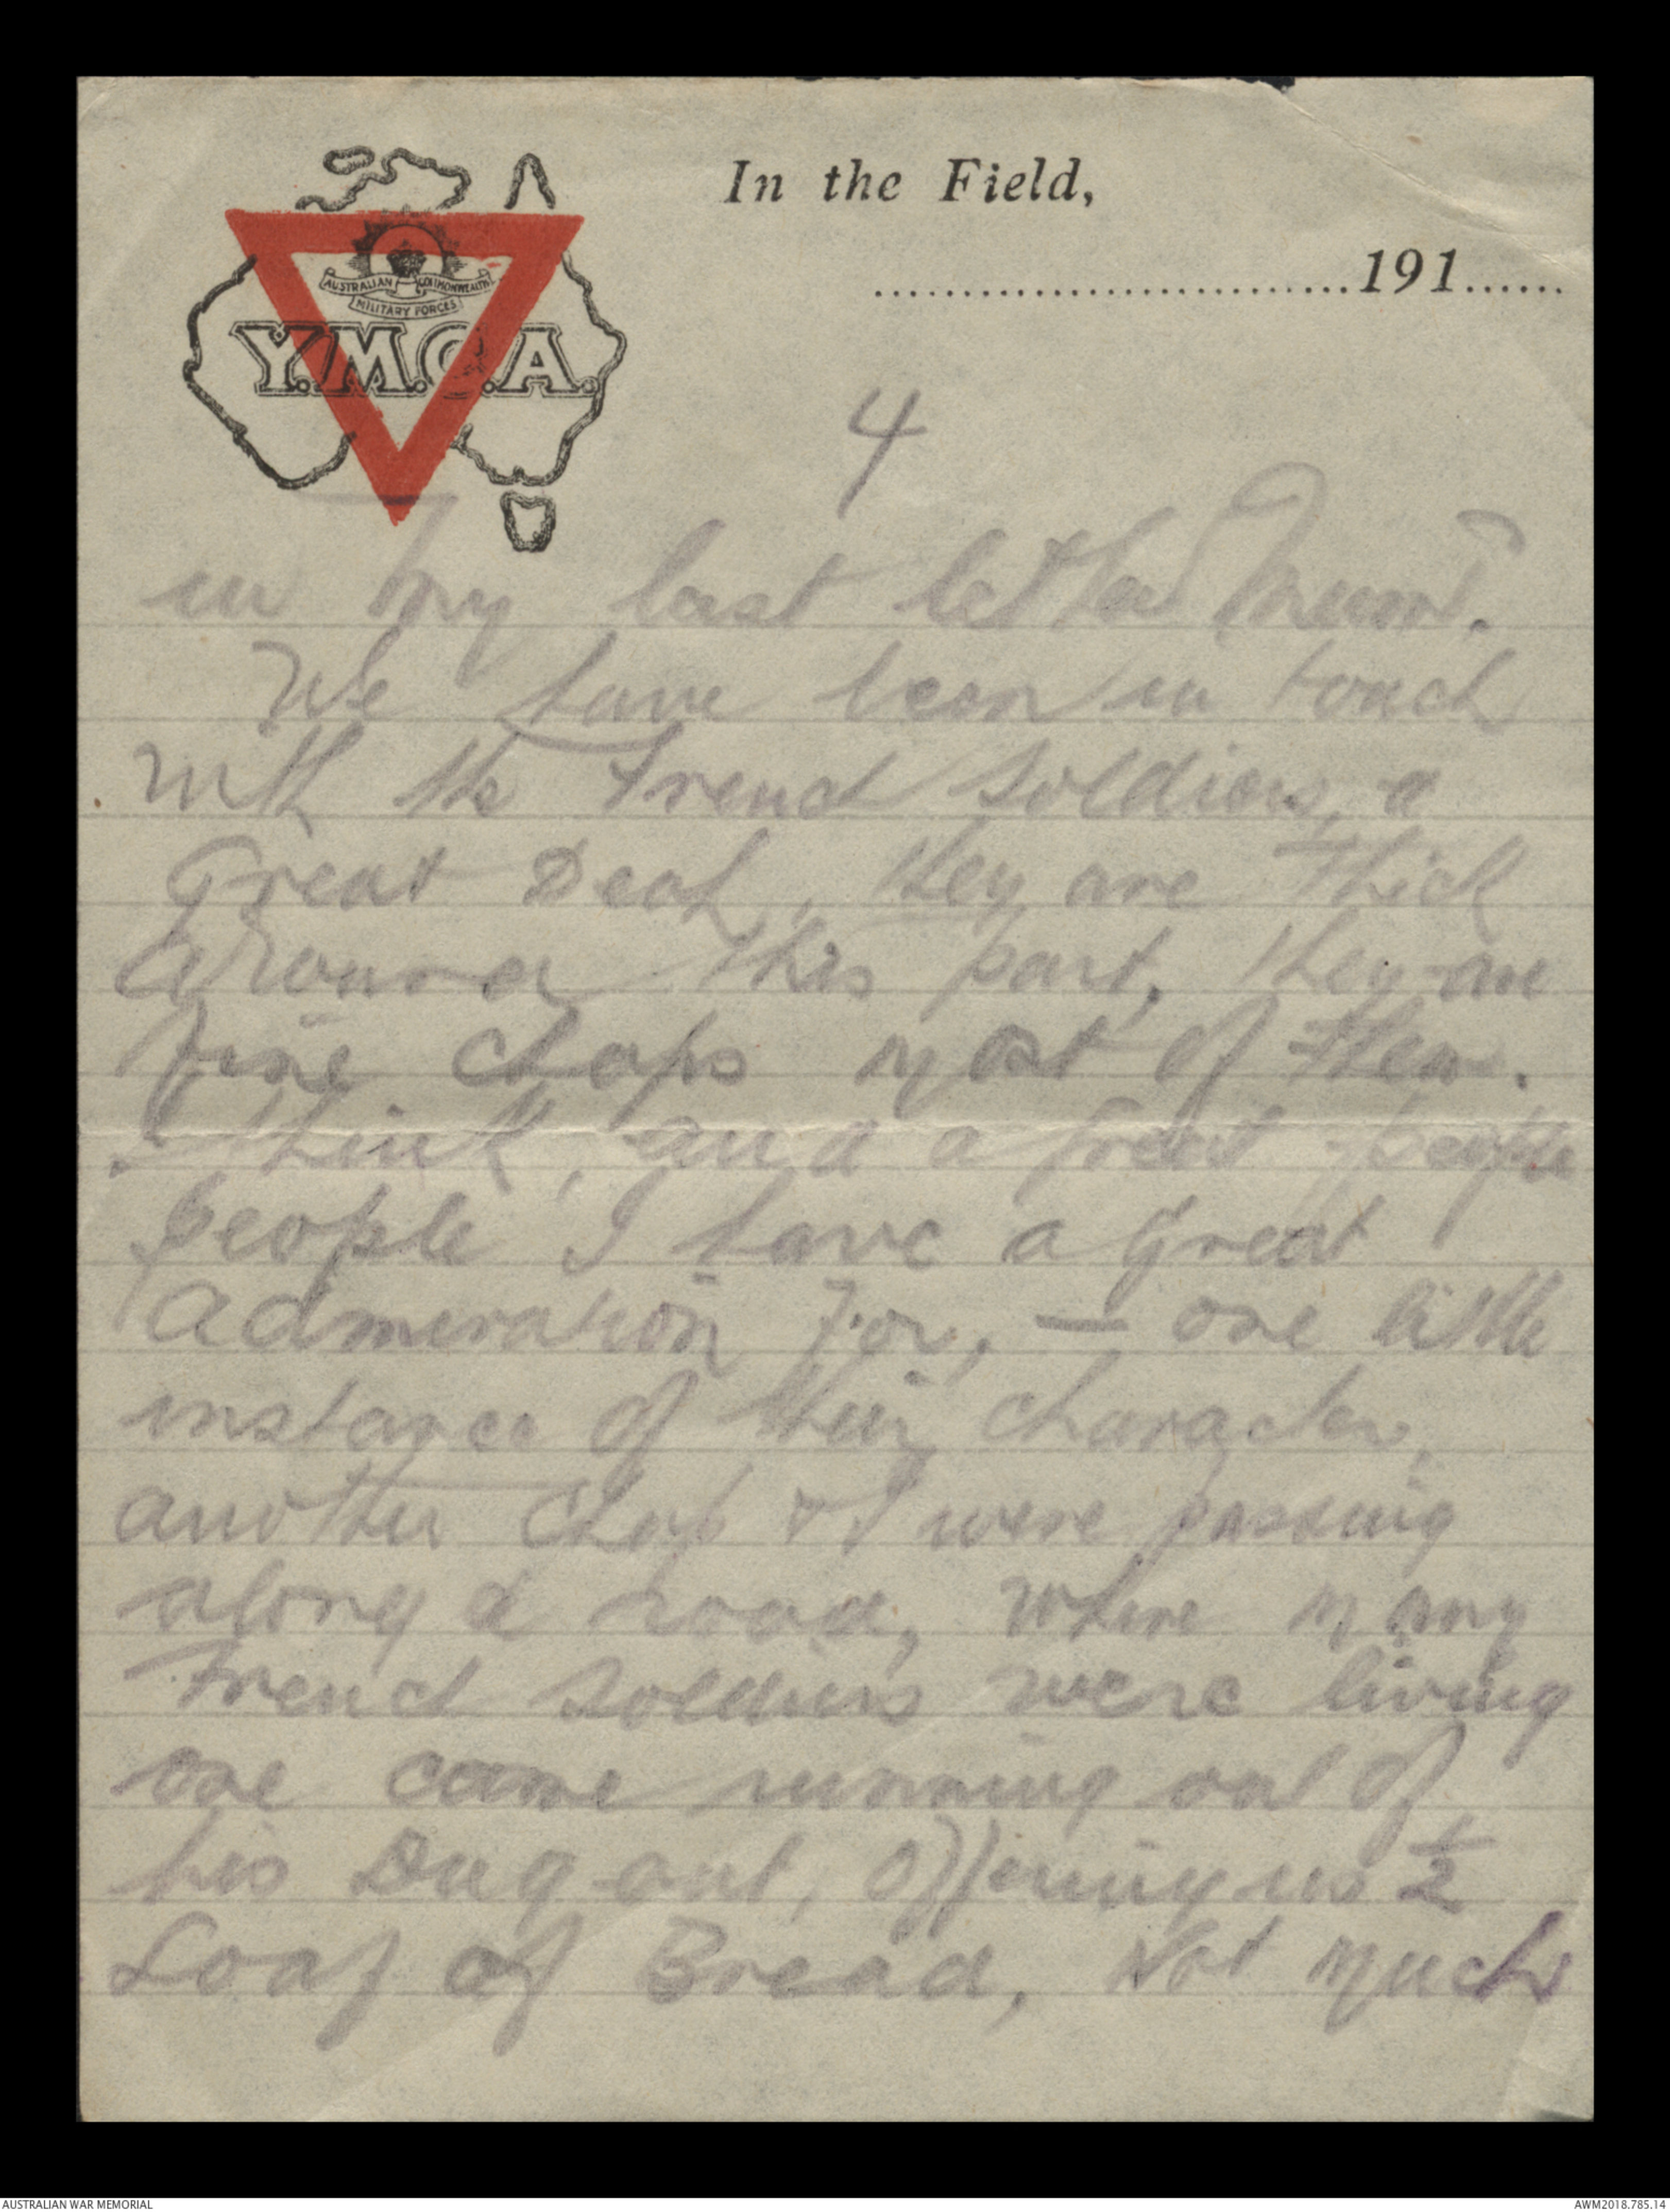 In the Field,
191
AUSTRALIAN COMMONWEALTH
MILITARY FORCES
Y.M.C.A.
4
in my last letter Mum.
We have been in touch
with the French soldiers, a
Great Deal, they are thick
around this part, they are
fine chaps most of them.
I think, and a great people
people I have a great
admeration for, — one little
instance of their character,
another chap & I were passing
along a road, where many
French soldiers were living
one came running out of
his Dug-out, offering us ½
Loaf of Bread, Not much
AUSTRALIAN WAR MEMORIAL
AWM2018.785.14